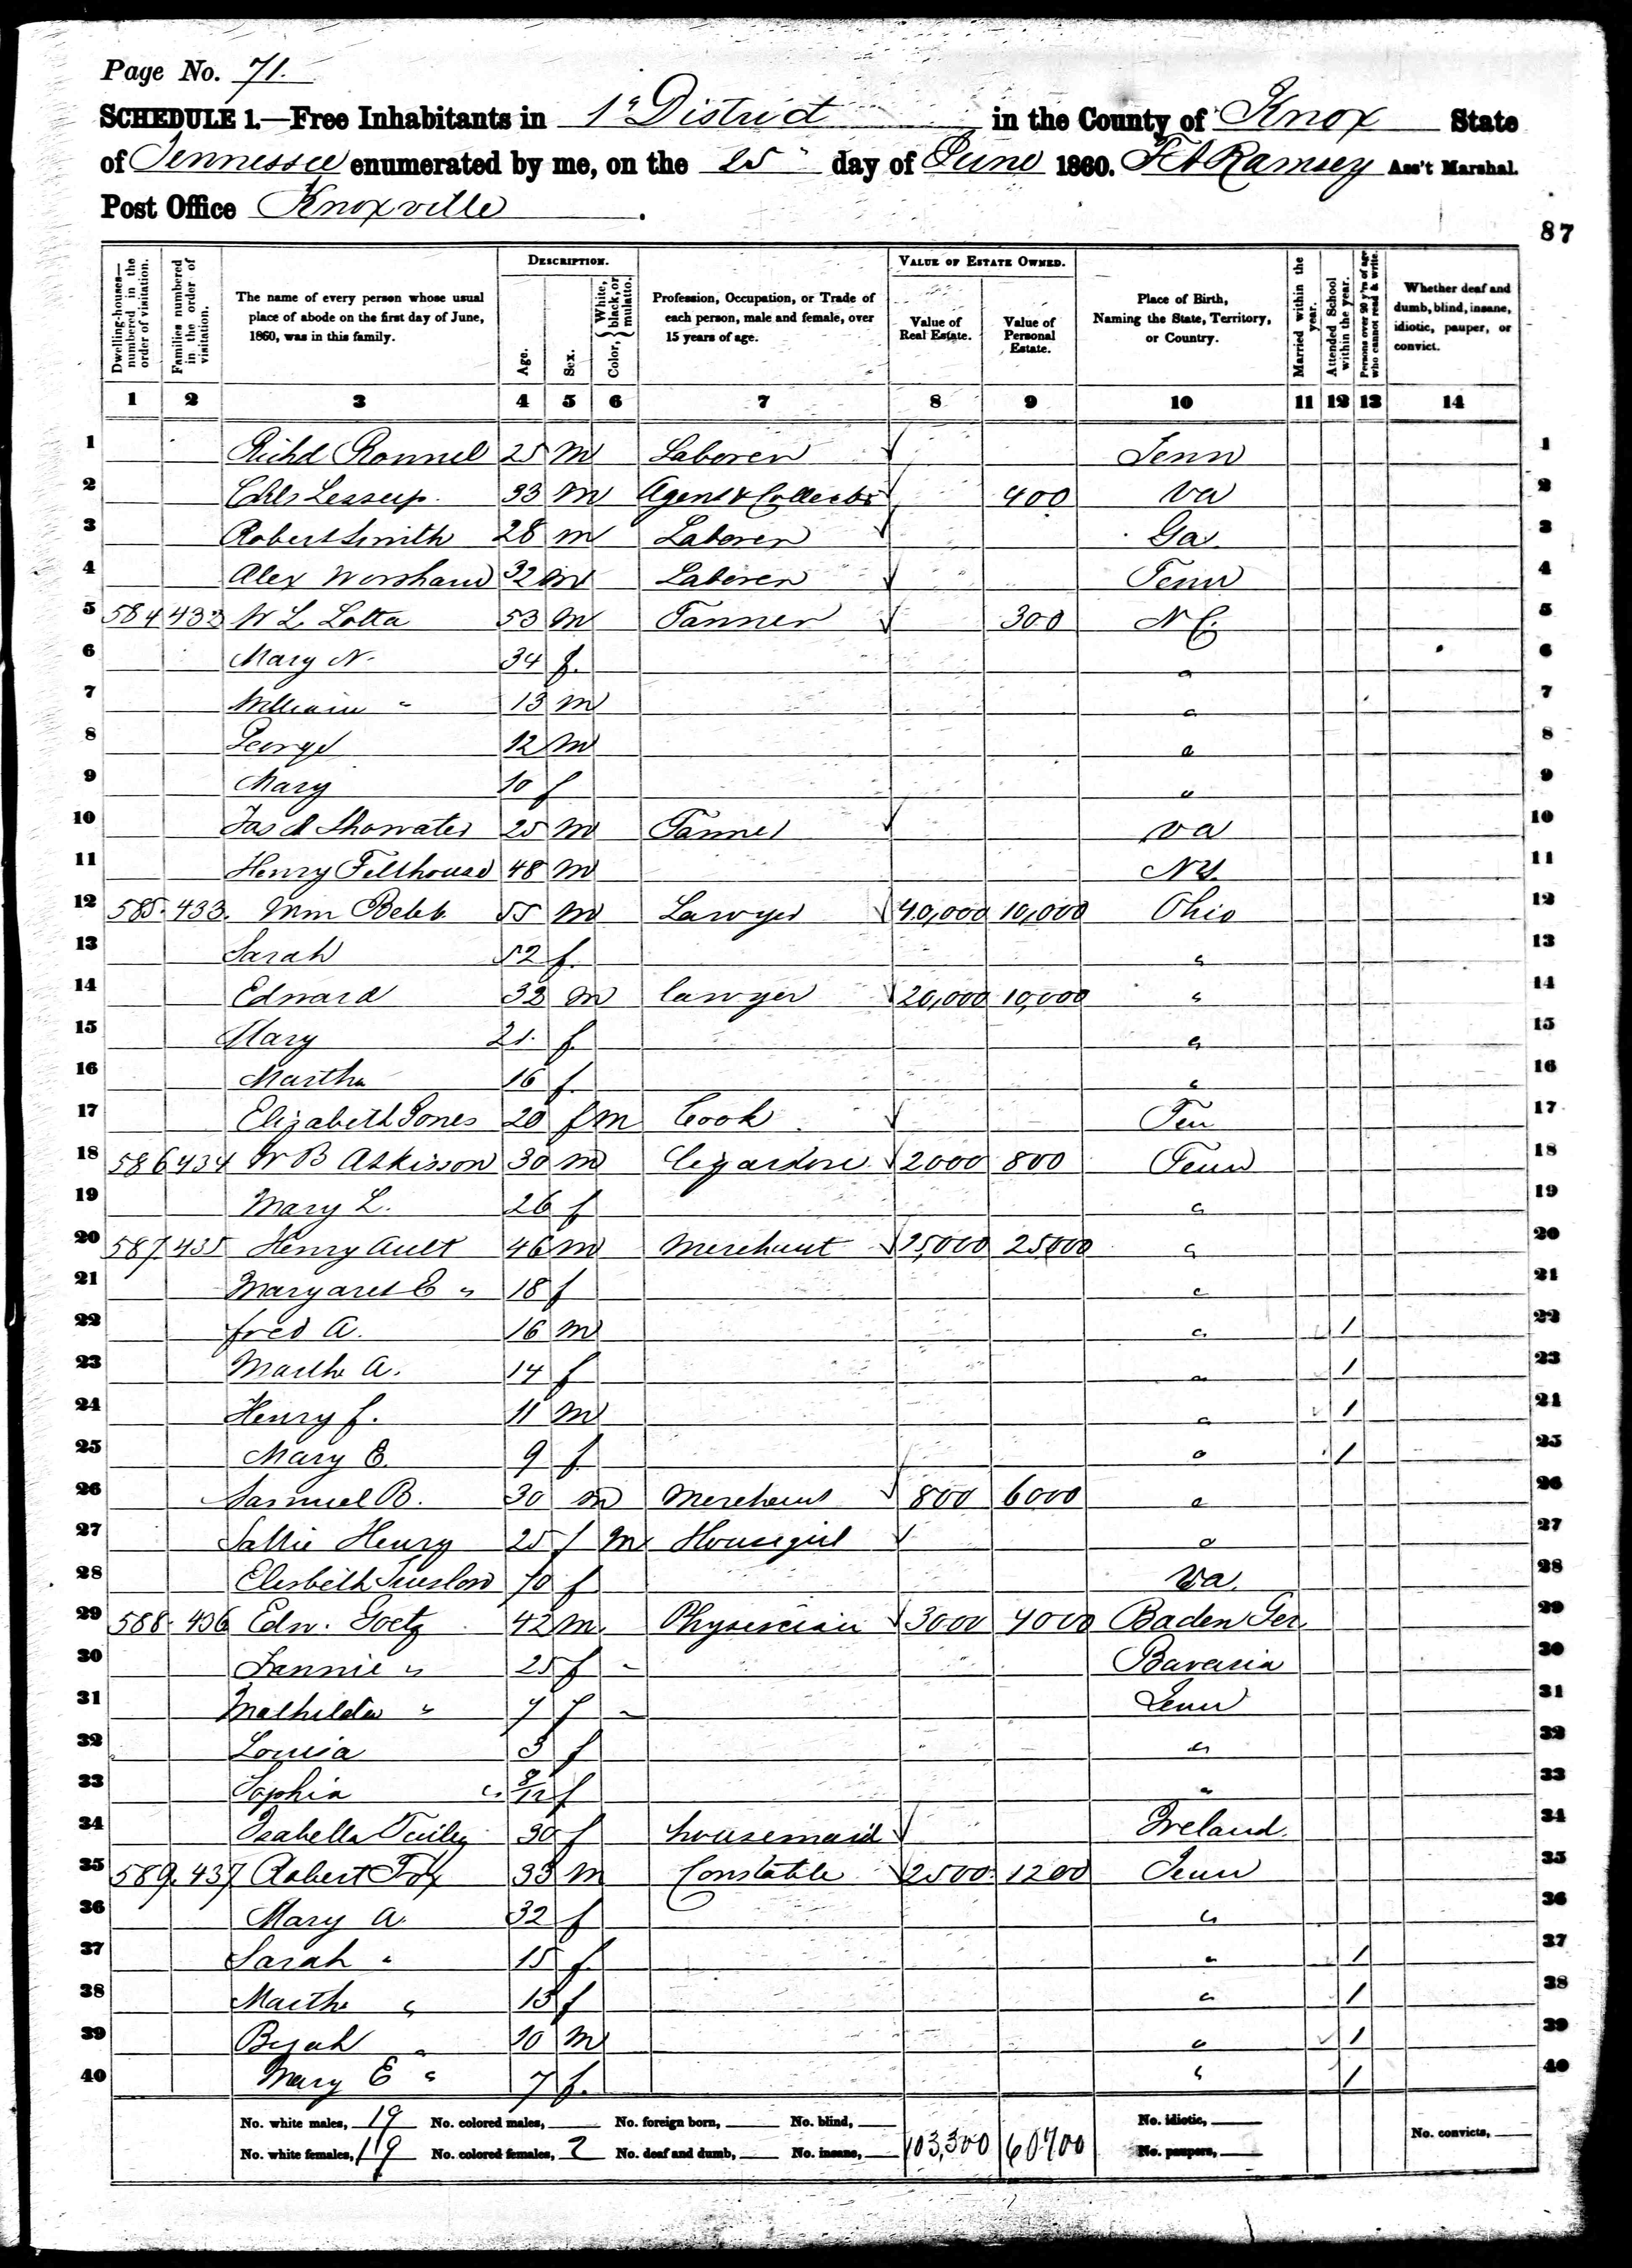 Page No. 71.
SCHEDULE 1.—Free Inhabitants in 1st District in the County of Knox State
of Tennessee enumerated by me, on the 25" day of June 1860. F A Ramsey Ass't Marshal.
Post Office Knoxville.
87
DESCRIPTION. VALUE OF ESTATE OWNED.
Dwelling-houses—numbered in the order of visitation. Families numbered in the order of visitation. The name of every person whose usual place of abode on the first day of June, 1860, was in this family. Age. Sex. Color, { White, black, or mulatto. Profession, Occupation, or Trade of each person, male and female, over 15 years of age. Value of Real Estate. Value of Personal Estate. Place of Birth, Naming the State, Territory, or Country. Married within the year. Attended School within the year. Persons over 20 y'rs of age who cannot read & write. Whether deaf and dumb, blind, insane, idiotic, pauper, or convict.
1 2 3 4 5 6 7 8 9 10 11 12 13 14
1 Richd 25 m Laborer Tenn 1
2 Chls Lessup. 33 m Agent & Collector 400 Va 2
3 Robert Smith 28 m Laborer Ga. 3
4 Alex Worsham 32 m Laborer Tenn 4
5 584 433 W L Lotta 53 m Tanner 300 N C. 5
6 Mary N. 34 f. " 6
7 William " 13 m " 7
8 George 12 m " 8
9 Mary 10 f " 9
10 Jas Showater 25 m Tanner Va 10
11 Henry Felthouse 48 m NY. 11
12 585. 433. Wm Bebb 55 m Lawyer 40,000 10,000 Ohio 12
13 Sarah 52 f. " 13
14 Edward 32 m lawyer 20,000 10,000 " 14
15 Mary 21. f. " 15
16 Martha 16 f. " 16
17 Elizabeth Jones 20 f m Cook Ten 17
18 586 434 W B Atkisson 30 m 2000 800 Tenn 18
19 Mary L. 26 f " 19
20 587 435 Henry Ault 46 m Merchant 25,000 25000 " 20
21 Margaret E " 18 f " 21
22 Fred A. 16 m " 1 22
23 Martha A. 14 f " 1 23
24 Henry f. 11 m " 1 24
25 Mary E. 9 f. " 1 25
26 Samuel B. 30 m Merchant 800 6000 " 26
27 Sallie Henry 25 f m Housegirl " 27
28 70 f Va. 28
29 588 436 Edw. Goetz 42 m. Physician 3000 4000 Baden Ger. 29
30 Fannie " 25 f Bavaria 30
31 Mathilda " 7 f Tenn 31
32 Louisa f " 32
33 Sophia " 8/12 f " 33
34 Isabella 30 f housemaid Ireland. 34
35 589. 437 Robert Fox 33 m Constable 2500. 1200 Tenn 35
36 Mary A. 32 f " 36
37 Sarah " 15 f. " 1 37
38 Martha " 13 f " 1 38
39 " 10 m " 1 39
40 Mary E " 7 f. " 1 40
No. white males, 19 No. colored males, No. foreign born, No. blind, No. idiotic,
No. white females, 19 No. colored females, 2 No. deaf and dumb, No. insane, 103,300 60700 No. paupers, No. convicts,